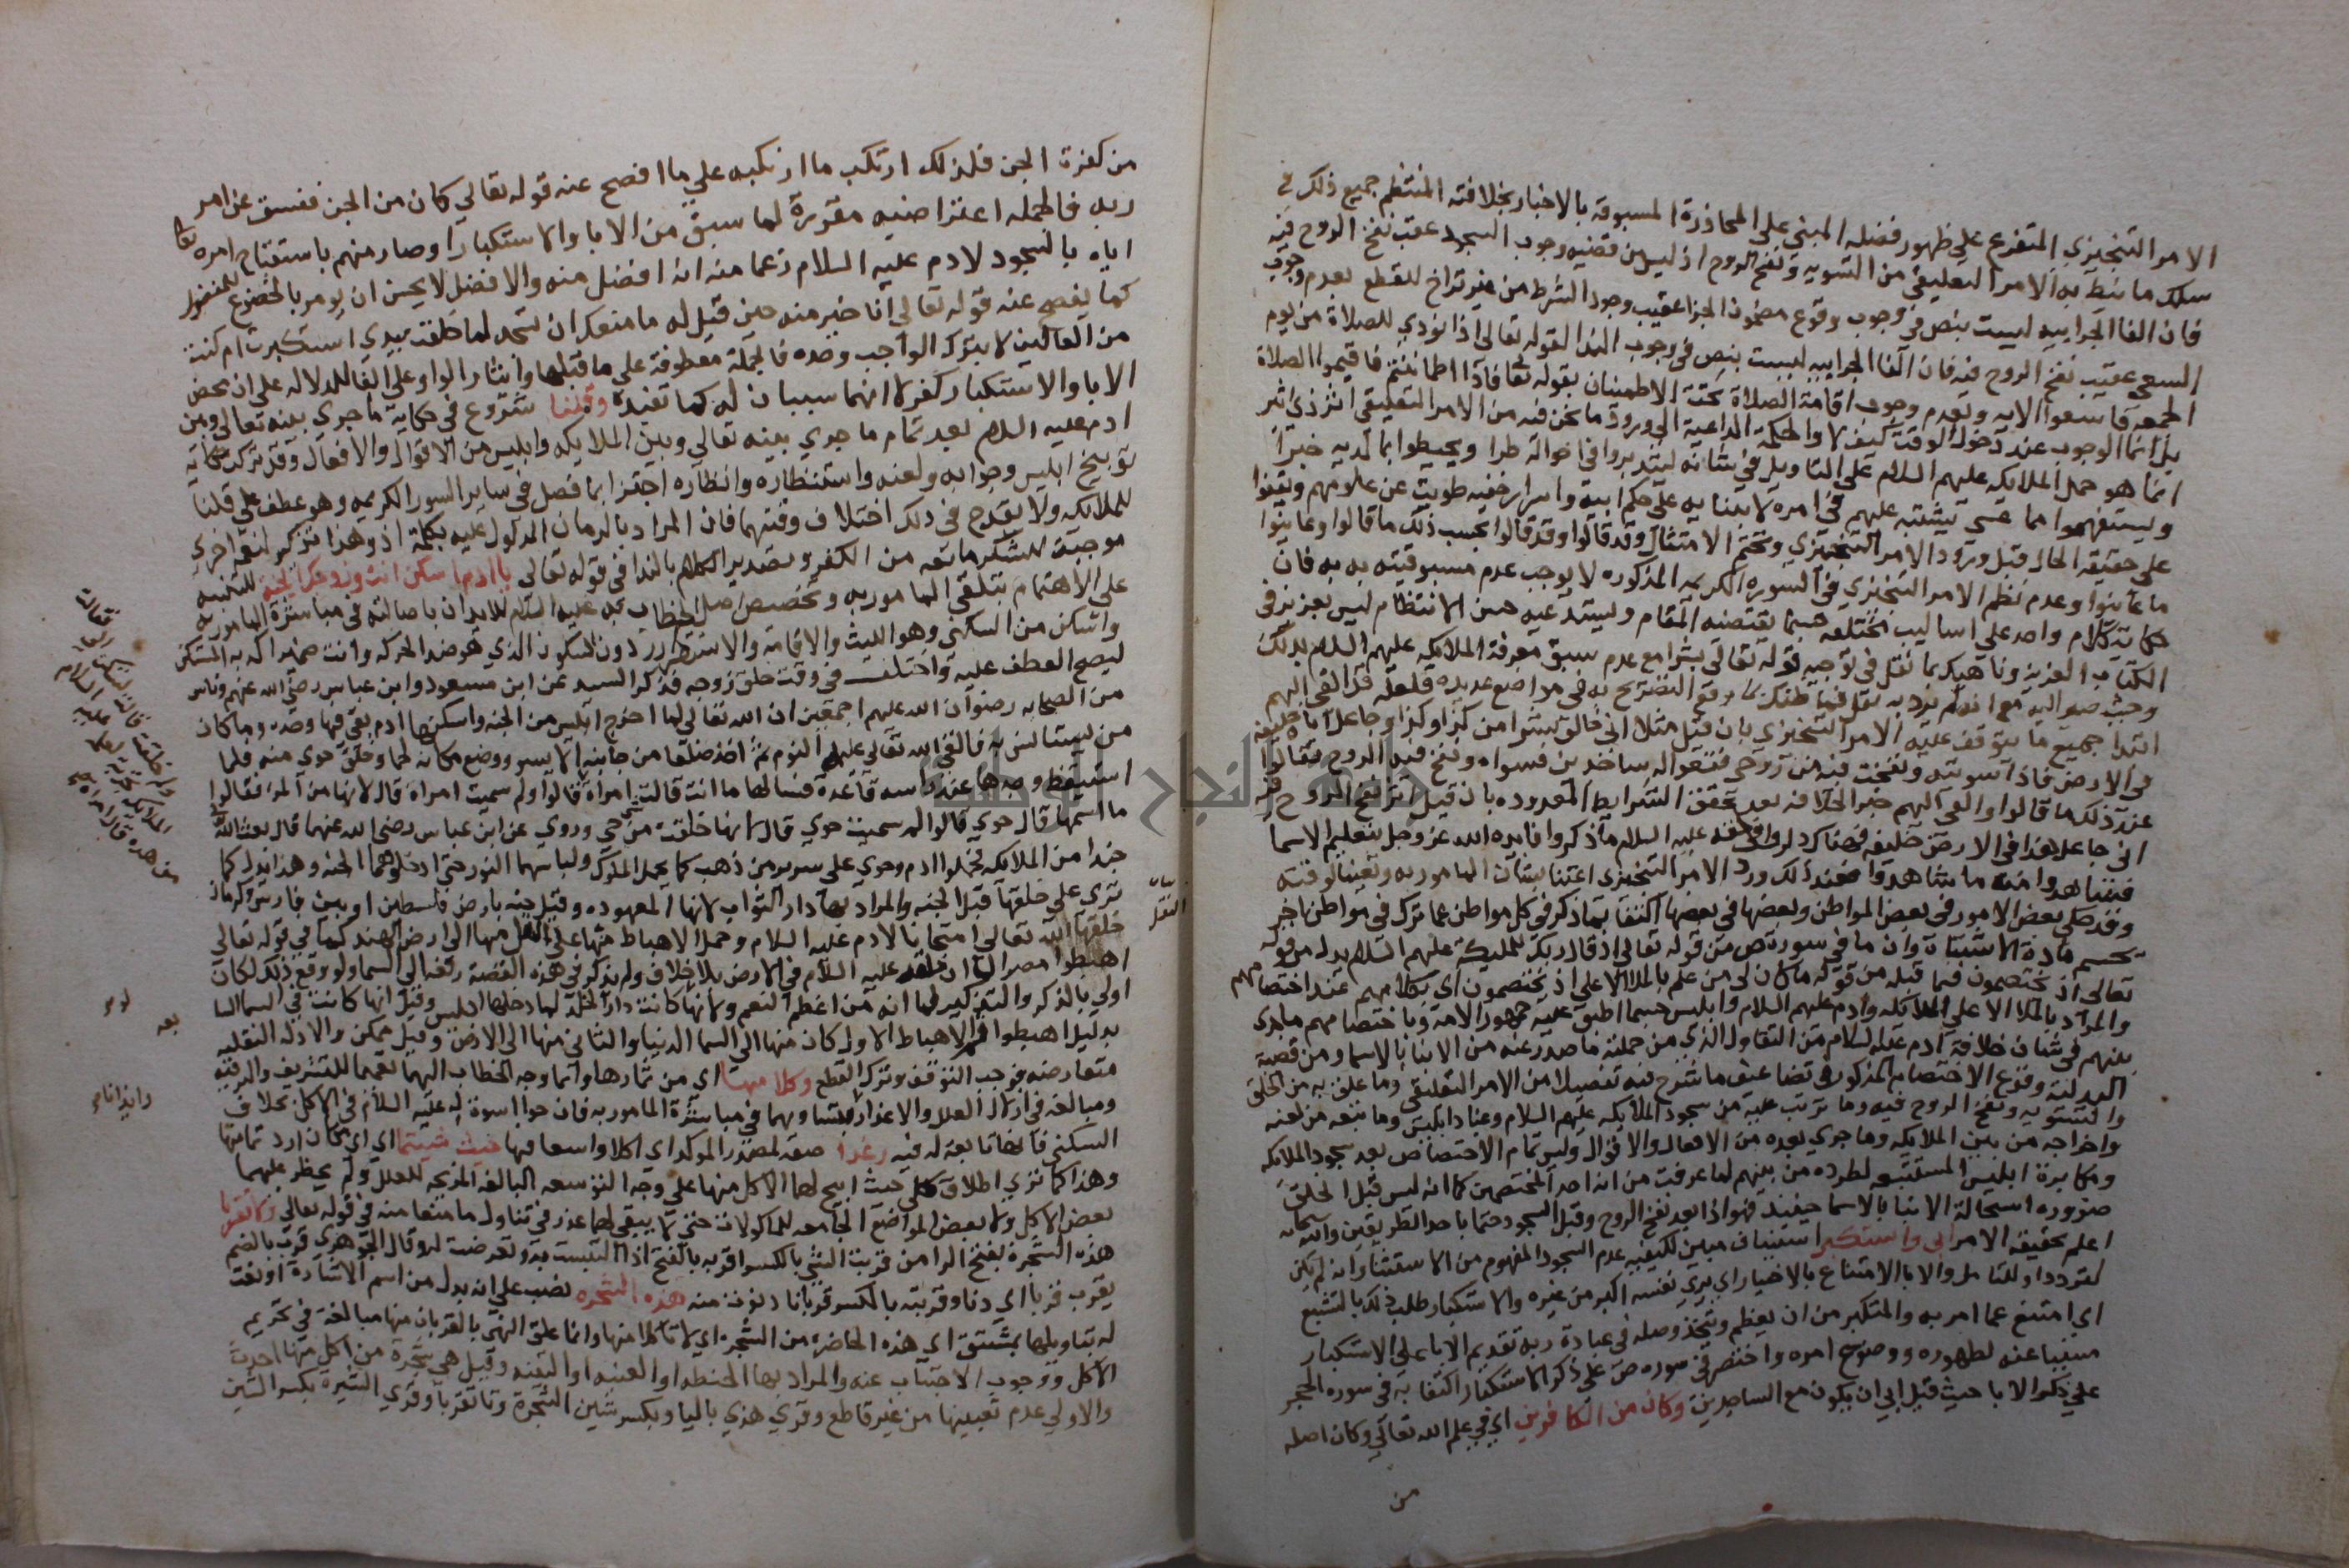 الامر التنجيزي المتفرع علي ظهور فضله المبني علي المحاورة المسبوقة بالاخبار بخلافته المنتظم جميع ذلك في
سلك ما نيط به الامر التعليقي من التسوية ونفخ الروح اذ ليس من قضيه وجوب السجود عقب نفخ الروح فيه
فان الفا الجزاييه ليست بنص في وجوب وقوع مضمون الجزا عقيب وجود الشرط من غير تراخ للقطع بعدم وجوب
السعي عقيب نفخ الروح فيه فان الفا الجزاييه ليست بنص في وجوب الندا لقوله تعالي اذا نودي للصلاة من يوم
الجمعه فاسعوا الايه ولعدم وجوب اقامة الصلاة تحتة الاطمينان بقوله تعا فاذا اطماننتم فاقيموا الصلاة
بل انما الوجوب عند دخول الوقت كيف لا والحكمة الداعية الي ورود ما نحن فيه من الامر التعليقي اثر ذي اثير
انما هو حمل الملايكه عليهم السلام علي التاويل في شانه ليتدبروا في احواله طرا ويحيطوا بما لديه خبرا
ويستفهموا مما عسي يشتبه عليهم في امره لابتنايه علي حكم ابية واسرار خفيه طويت عن علومهم ويقفوا
علي حقيقة الحال قبل ورود الامر التنجيزي وتحتم الامتثال وقد قالوا وقد قالوا بحسب ذلك ما قالوا وعاينوا
ما عاينوا وعدم نظم الامر التنجيزي في السورة الكريمه المذكوره لا يوجب عدم مسبوقيته به فان
حكاية كلام واحد علي اساليب مختلفه حسبما يقتضيه المقام ويستدعيه حسن الانتظام ليس بعزيز في
الكتاب العزيز وناهيك بما نقل في توجيه قوله تعالي بشرا مع عدم سبق معرفة الملايكه عليهم السلام بذلك
وحيث صير اليه مع انه لم يرد به نقل فما ظنك بما وقع التصريح به في مواضع عديده فلعله قد القي اليهم
ابتدا جميع ما يتوقف عليه الامر التنجيزي بان قيل مثلا اني خالق بشرا من كذا وكذا وجاعل اياه خليفه
في الارض فاذا سويته ونفخت فيه من روحي فقعوا له ساجدين فسواه ونفخ فيه الروح فقالوا
عند ذلك ما قالوا او القي اليهم خبر الخلافه بعد تحقق الشرايط المعدوده بان قيل اثر نفخ الروح فيه
اني جاعل هذا في الارض خليفه فهناك ذكروا في حقه عليه السلام ما ذكروا فايده الله عز وجل بتعليم الاسما
فشاهدوا منه ما شاهدوا فعند ذلك ورد الامر التنجيزي اعتنا بشان المامور به وتعيينا لوقته
وقد حكي بعض الامور في بعض المواطن وبعضها في بعضها اكتفا بما ذكر في كل مواطن عما ترك في مواطن اخر
تحسم مادة الاشتباه وان ما في سورة ص من قوله تعالي اذ قال ربك للمليكة عليهم السلام بدل من قوله
تعالي اذ يختصمون فيما قبله من قوله ما كان لي من علم بالملا الاعلي اذ يختصمون اي بكلامهم عند اختصامهم
والمراد بالملا الاعلي الملايكه وادم عليهم السلام وابليس حسبما اطبق عليه جمهور الامة وباختصامهم ما جري
بينهم في شان خلافة ادم عليه السلام من التقاول الذي من جملته ما صدر عنه من الانبا بالاسما ومن قضية
البدلية وقوع الاختصام المذكور في تضاعيف ما شرح فيه تفصيلا من الامر التعليقي وما علق به من الخلق
والتسويه ونفخ الروح فيه وما ترتب عليه من سجود الملايكه عليهم السلام وعناد ابليس وما تبعه من لعنه
واخراجه من بين الملايكه وما جري بعده من الافعال والاقوال وليس تمام الاختصاص بعد سجود الملايكه
ومكابرة ابليس المستتبعه لطرده من بينهم لما عرفت من انه احد المختصمين كما انه ليس قبل الخلق
ضرورة استحالة الانبا بالاسما حينيذ فهو اذا بعد نفخ الروح وقبل السجود حتما باحد الطريقين والله سبحانه
اعلم بحقيقه الامر ابي واستكبر استيناف مبين لكيفيه عدم السجود المفهوم من الاستثنا وانه لم يكن
للتردد او للتامل والابا الامتناع بالاختيار اي يري نفسه اكبر من غيره والاستكبار طلب ذلك بالتشبع
اي امتنع عما امر به والمتكبر من ان يعظمه ويتخذ وصله في عبادة ربه تقديم الابا علي الاستكبار
مسببا عنه لظهوره ووضوح امره واختصر في سوره ص علي ذكر الاستكبار اكتفا به في سوره الحجر
علي ذكر الابا حيث قيل ابي ان يكون مع الساجدين وكان من الكافرين اي في علم الله تعالي وكان اصله
من
من كفرة الجن فلذلك ارتكب ما ارتكبه علي ما افصح عنه قوله تعالي كان من الجن ففسق عن امر
ربه فالجمله اعتراضيه مقررة لما سبق من الابا والاستكبار او صار منهم باستقباح امره تعا
اياه بالسجود لادم عليه السلام زعما منه انه افضل منه والافضل لا يحسن ان يومر بالخضوع للمفضول
كما يفصح عنه قوله تعالي انا خير منه حين قيل له ما منعك ان تسجد لما خلقت بيدي استكبرت ام كنت
من العالين لا بترك الواجب وحده فالجملة معطوفة علي ما قبلها وايثار الواو علي الفا للدلاله علي ان محض
الابا والاستكبار كفر لا انهما سببان له كما تفيده وقلنا شروع في حكاية ما جري بينه تعالي وبين
ادم عليه السلام بعد تمام ما جري بينه تعالي وبين الملايكه وابليس من الاقوال والافعال وقد تركت حكاية
توبيخ ابليس وجوابه ولعنه واستنظاره وانظاره اجتزا بما فصل في ساير السور الكريمه وهو عطف علي قلنا
للملايكه ولا يقدح في ذلك اختلاف وقتهما فان المراد بالزمان المدلول عليه بكلمة اذ وهذا تذكير لنعمة اخري
موجبة للشكر مانعه من الكفر وتصدير الكلام بالندا في قوله تعالي يا ادم اسكن انت وزوجك الجنة للتنبيه
علي الاهتمام بتلقي المامور به وتخصيص اصل الخطاب به عليه السلام للايذان باصالته في مباشرة المامور به
واسكن من السكني وهو اللبث والاقامة والاستقرار دون السكون الذي هو ضد الحركه وانت ضمير اكد به المستكن
ليصح العطف عليه واختلف في وقت خلق زوجه فذكر السدي عن ابن مسعود وابن عباس رضي الله عنهم وناس
من الصحابه رضوان الله عليهم اجمعين ان الله تعالي لما اخرج ابليس من الجنه واسكنها ادم بقي فيها وحده وما كان
من يستانس به فالقي الله تعالي عليه النوم ثم اخذ ضلعا من جانبه الايسر ووضع مكانه لحما وخلق حوي منه فلما
استيقظ وجدها عند راسه قاعدة فسالها ما انت قالت امراة قالوا ولم سميت امراة قال لانها من المرا فقالوا
ما اسمها قال حوي قالوا لم سميت حوي قال لانها خلقت من حي وروي عن ابن عباس رضي الله عنهما قال بعث الله
جندا من الملايكه فحملوا ادم وحوي علي سرير من ذهب كما يحمل الملوك ولباسهما النور حتي ادخلوهما الجنه وهذا يدل كما
تري علي خلقها قبل الجنه والمراد بها دار الثواب لانها المعهوده وقيل جنه بارض فلسطين او بين فارس وكرمان
خلقها الله تعالي امتحانا لادم عليه السلام وحمل الاهباط منها علي النقل منها الي ارض الهند كما في قوله تعالي
اهبطوا مصرا لما ان خلقه عليه السلام في الارض بلا خلاف ولم يذكر في هذه القصة رفعه الي السما ولو وقع ذلك لكان
اولي بالذكر والتذكير لما انه من اعظم النعم ولانها لو كانت دار الخلد لما دخلها ابليس وقيل انها كانت في السما السا
بدليل اهبطوا فالاهباط الاول كان منها الي السما الدنيا والثاني منها الي الارض وقيل ممكن والادلة النقليه
متعارضه فوجب التوقف وترك القطع وكلا منها اي من ثمارها وانما وجه الخطاب اليهما تعميما للتشريف والترفيه
ومبالغه في ازالة العلل والاعذار لتساويهما في مباشرة المامور به فان حوا اسوة له عليه السلام في الاكل بخلاف
السكني فانها تابعة له فيه رغدا صفة للمصدر الموكد اي اكلا واسعا فيها حيث شيتما اي اي مكان اردتما منها
وهذا كما تري اطلاق كلي حيث ابيح لهما الاكل منها علي وجه التوسعه البالغه المزيحه للعلل ولم يحظر عليهما
بعض الاكل ولا بعض المواضع الجامعه للماكولات حتي لا يبقي لهما عذر في تناول ما منعا منه في قوله تعالي ولا تقربا
هذه الشجرة بفتح الرا من قربت الشي بالكسر اقربه بالفتح اذا التبست به وتعرضت له وقال الجوهري قرب بالضم
يقرب قربا اي دنا وقربته بالكسر قربانا دنوت منه هذه الشجره نصب علي انه بدل من اسم الاشارة او نعت
له بتاويلها بمشتق اي هذه الحاضره من الشجر اي لا تاكلا منها وانما علق النهي بالقربان منها مبالغة في تحريم
الاكل ووجوب الاجتناب عنه والمراد بها الحنطه او العنبه او التينه وقيل هي شجرة من اكل منها احدث
والاولي عدم تعيينها من غير قاطع وقري هذي باليا وبكسر شين الشجرة وتا تقربا وقري الشيرة بكسر الشين